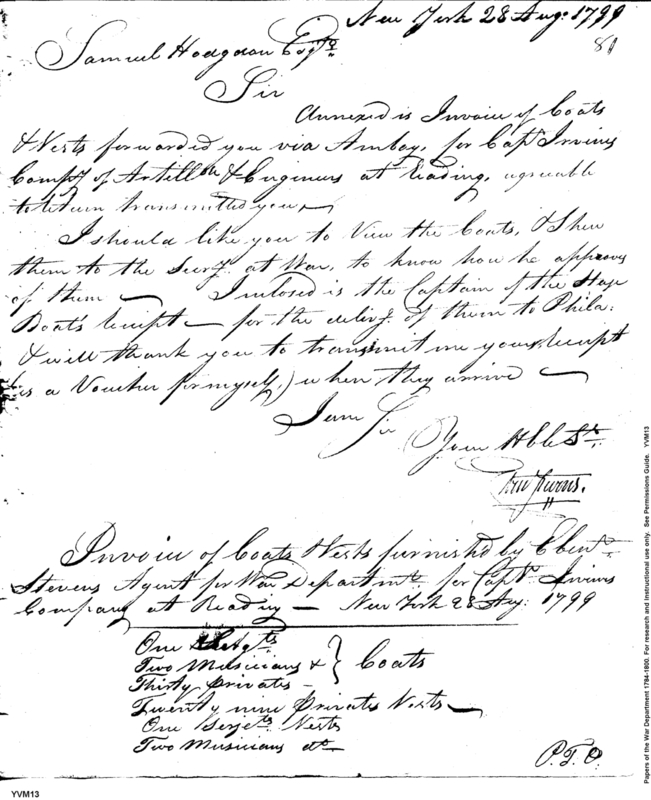 New York 28 Aug: 1799
81
Samuel Hodgdon Esqr.
Sir
Annexed is Invoice of Coats
& Vests forwarded you via Amboy, for Capt. Irvins
Compy. of Artille. & Engineers at Reading, agreeable
to return transmitted you,
I should like you to View the Coats, & Shew
them to the Secry. at War, to know how he approves
of them — Inclosed is the Captain of the Stage
Boat's receipt — for the delivy. of them to Phila:
& will thank you to transmit me your receipt
(as a Voucher for myself,) when they arrive —
I am Sir
Your Hble St.
Eben Stevens.
Invoice of Coats & Vests furnished by Ebenr.
Stevens Agent for War Departmt. for Captn. Irvins
Company at Reading — New York 28 Aug: 1799
One Serjts.
Two Musicians & } Coats
Thirty Privates —
Twenty nine Privates Vests —
One Serjts. Vests
Two Musicians do —
P.T.O.
YVM13
Papers of the War Department 1784-1800. For research and instructional use only. See Permissions Guide. YVM13